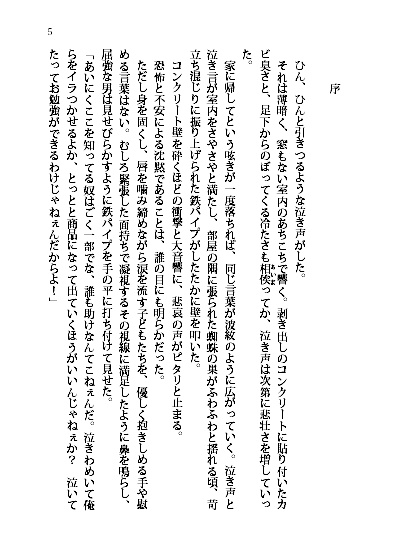 5
序
ひん、ひんと引きつるような泣き声がした。
それは薄暗く、窓もない室内のあちこちで響く。剥き出しのコンクリートに貼り付いたカ
ビ臭さと、足下からのぼってくる冷たさも相俟ってか、泣き声は次第に悲壮さを増していっ
た。
家に帰してという呟きが一度落ちれば、同じ言葉が波紋のように広がっていく。泣き声と
泣き言が室内をさやさやと満たし、部屋の隅に張られた蜘蛛の巣がふわふわと揺れる頃、苛
立ち混じりに振り上げられた鉄パイプがしたたかに壁を叩いた。
コンクリート壁を砕くほどの衝撃と大音響に、悲哀の声がピタリと止まる。
恐怖と不安による沈黙であることは、誰の目にも明らかだった。
ただし身を固くし、唇を噛み締めながら涙を流す子どもたちを、優しく抱きしめる手や慰
める言葉はない。むしろ緊張した面持ちで凝視するその視線に満足したように鼻を鳴らし、
屈強な男は見せびらかすように鉄パイプを手の平に打ち付けて見せた。
「あいにくここを知ってる奴はごく一部でな、誰も助けなんてこねぇんだ。泣きわめいて俺
らをイラつかせるよか、とっとと商品になって出ていくほうがいいんじゃねぇか？　泣いて
たってお勉強ができるわけじゃねぇんだからよ！」